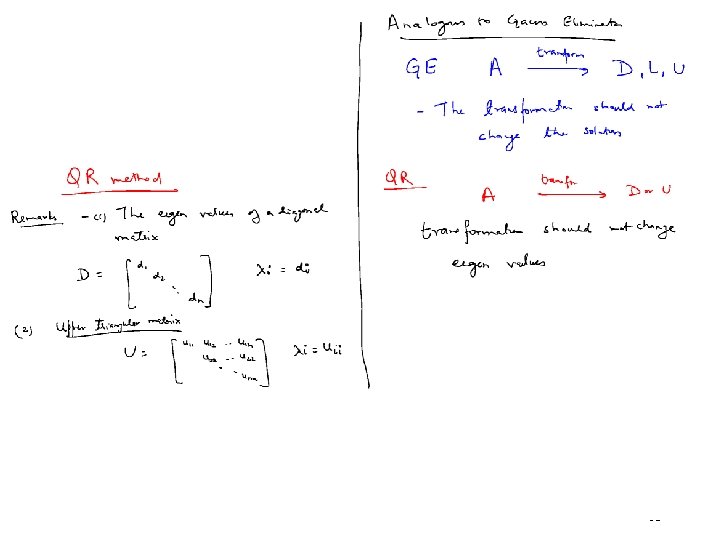 QR method
Remarks - (1) The eigen values of a diagonal
matrix
D = [d1 d2 ⋱ dn] λi = di
(2) Upper triangular matrix
U = [u11 u12 ... u1n
u22 ...
unn] λi = uii
Analogous to Gauss Elimination
GE A transform → D, L, U
- The transformation should not
change the solution
QR A transfn → D or U
transformation should not change
eigen values